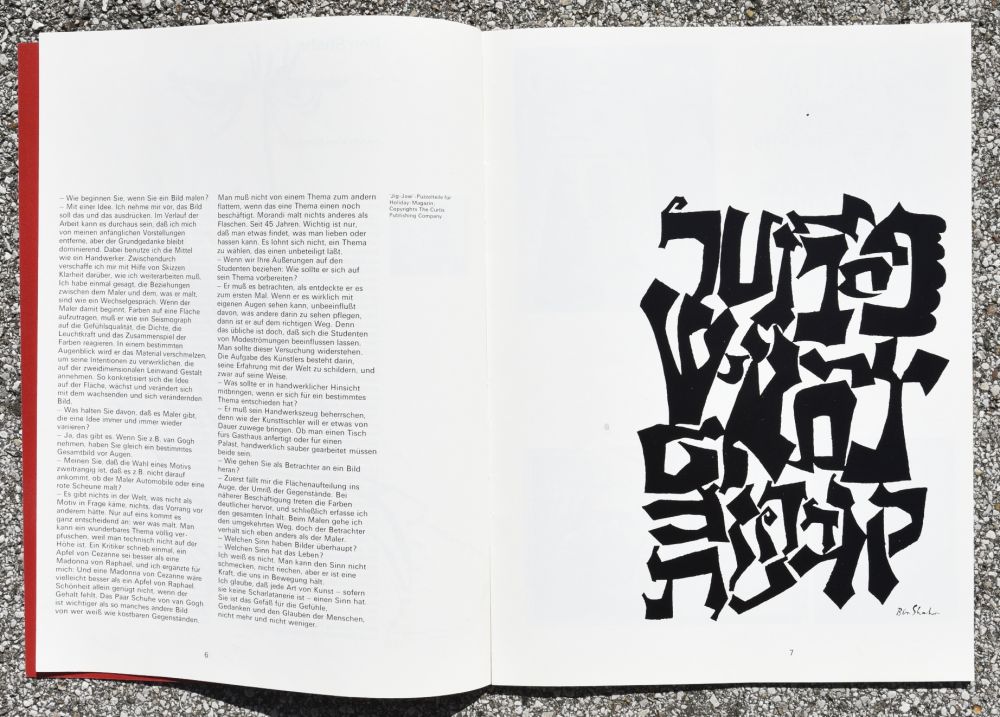 – Wie beginnen Sie, wenn Sie ein Bild malen?
– Mit einer Idee. Ich nehme mir vor, das Bild
soll das und das ausdrücken. Im Verlauf der
Arbeit kann es durchaus sein, daß ich mich
von meinen anfänglichen Vorstellungen
entferne, aber der Grundgedanke bleibt
dominierend. Dabei benutze ich die Mittel
wie ein Handwerker. Zwischendurch
verschaffe ich mir mit Hilfe von Skizzen
Klarheit darüber, wie ich weiterarbeiten muß.
Ich habe einmal gesagt, die Beziehungen
zwischen dem Maler und dem, was er malt,
sind wie ein Wechselgespräch. Wenn der
Maler damit beginnt, Farben auf eine Fläche
aufzutragen, muß er wie ein Seismograph
auf die Gefühlsqualität, die Dichte, die
Leuchtkraft und das Zusammenspiel der
Farben reagieren. In einem bestimmten
Augenblick wird er das Material verschmelzen,
um seine Intentionen zu verwirklichen, die
auf der zweidimensionalen Leinwand Gestalt
annehmen. So konkretisiert sich die Idee
auf der Fläche, wächst und verändert sich
mit dem wachsenden und sich verändernden
Bild.
– Was halten Sie davon, daß es Maler gibt,
die eine Idee immer und immer wieder
variieren?
– Ja, das gibt es. Wenn Sie z.B. van Gogh
nehmen, haben Sie gleich ein bestimmtes
Gesamtbild vor Augen.
– Meinen Sie, daß die Wahl eines Motivs
zweitrangig ist, daß es z.B. nicht darauf
ankommt, ob der Maler Automobile oder eine
rote Scheune malt?
– Es gibt nichts in der Welt, was nicht als
Motiv in Frage käme, nichts, das Vorrang vor
anderem hätte. Nur auf eins kommt es
ganz entscheidend an: wer was malt. Man
kann ein wunderbares Thema völlig ver-
pfuschen, weil man technisch nicht auf der
Höhe ist. Ein Kritiker schrieb einmal, ein
Apfel von Cezanne sei besser als eine
Madonna von Raphael, und ich ergänzte für
mich: Und eine Madonna von Cezanne wäre
vielleicht besser als ein Apfel von Raphael.
Schönheit allein genügt nicht, wenn der
Gehalt fehlt. Das Paar Schuhe von van Gogh
ist wichtiger als so manches andere Bild
von wer weiß wie kostbaren Gegenständen.
Man muß nicht von einem Thema zum andern
flattern, wenn das eine Thema einen noch
beschäftigt. Morandi malt nichts anderes als
Flaschen. Seit 45 Jahren. Wichtig ist nur,
daß man etwas findet, was man lieben oder
hassen kann. Es lohnt sich nicht, ein Thema
zu wählen, das einen unbeteiligt läßt.
– Wenn wir Ihre Äußerungen auf den
Studenten beziehen: Wie sollte er sich auf
sein Thema vorbereiten?
– Er muß es betrachten, als entdeckte er es
zum ersten Mal. Wenn er es wirklich mit
eigenen Augen sehen kann, unbeeinflußt
davon, was andere darin zu sehen pflegen,
dann ist er auf dem richtigen Weg. Denn
das übliche ist doch, daß sich die Studenten
von Modeströmungen beeinflussen lassen.
Man sollte dieser Versuchung widerstehen.
Die Aufgabe des Künstlers besteht darin,
seine Erfahrung mit der Welt zu schildern, und
zwar auf seine Weise.
– Was sollte er in handwerklicher Hinsicht
mitbringen, wenn er sich für ein bestimmtes
Thema entschieden hat?
– Er muß sein Handwerkszeug beherrschen,
denn wie der Kunsttischler will er etwas von
Dauer zuwege bringen. Ob man einen Tisch
fürs Gasthaus anfertigt oder für einen
Palast, handwerklich sauber gearbeitet müssen
beide sein.
– Wie gehen Sie als Betrachter an ein Bild
heran?
– Zuerst fällt mir die Flächenaufteilung ins
Auge, der Umriß der Gegenstände. Bei
näherer Beschäftigung treten die Farben
deutlicher hervor, und schließlich erfasse ich
den gesamten Inhalt. Beim Malen gehe ich
den umgekehrten Weg, doch der Betrachter
verhält sich eben anders als der Maler.
– Welchen Sinn haben Bilder überhaupt?
– Welchen Sinn hat das Leben?
Ich weiß es nicht. Man kann den Sinn nicht
schmecken, nicht riechen, aber er ist eine
Kraft, die uns in Bewegung hält.
Ich glaube, daß jede Art von Kunst – sofern
sie keine Scharlatanerie ist – einen Sinn hat.
Sie ist das Gefäß für die Gefühle,
Gedanken und den Glauben der Menschen,
nicht mehr und nicht weniger.
'Jig-Jaw' Puzzleteile für
Holiday-Magazin;
Copyrights The Curtis
Publishing Company
6
Ben Shahn
7